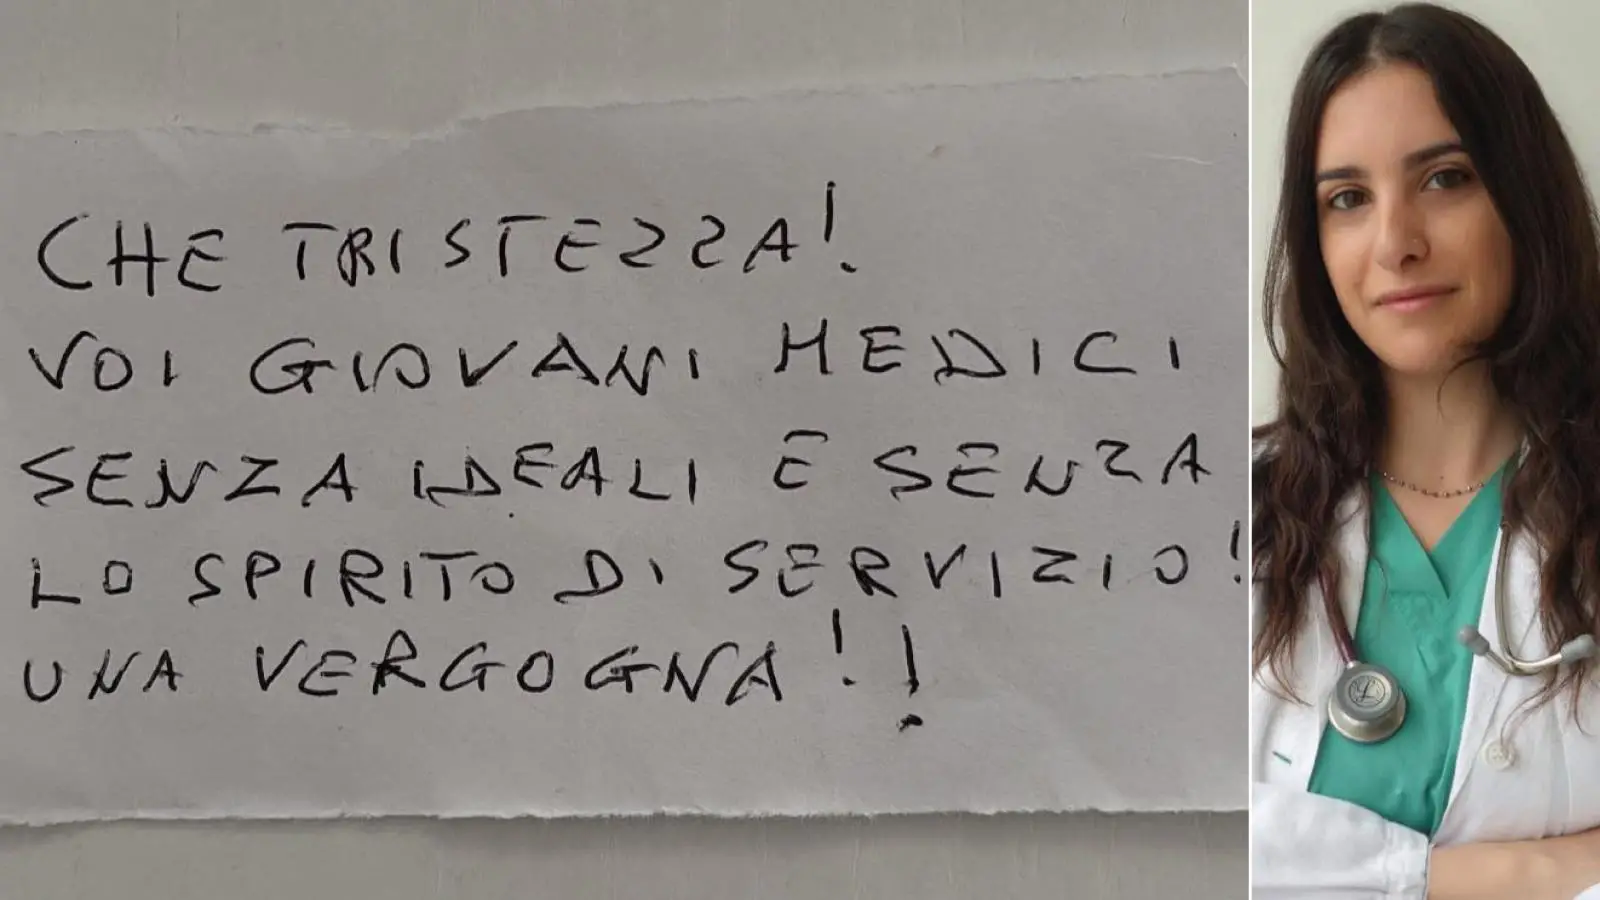 CHE TRISTEZZA!
VOI GIOVANI MEDICI
SENZA IDEALI E SENZA
LO SPIRITO DI SERVIZIO!
UNA VERGOGNA!!